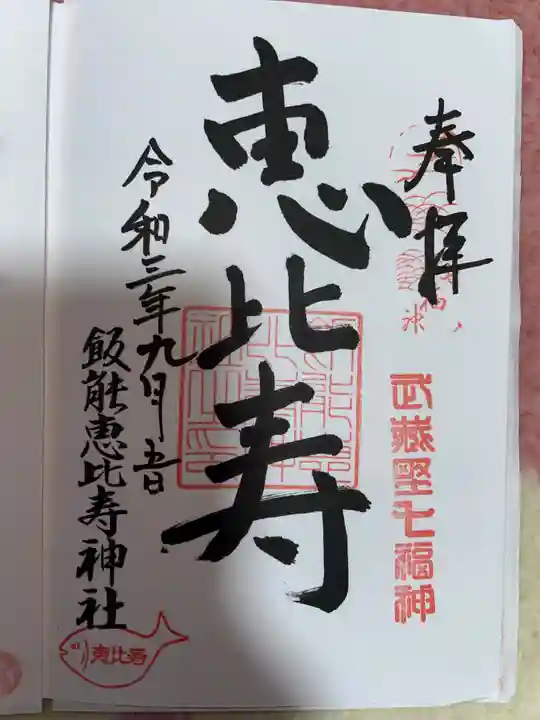 奉拝
武蔵野七福神
恵比寿
令和三年九月吉日
飯能恵比寿神社
恵比寿